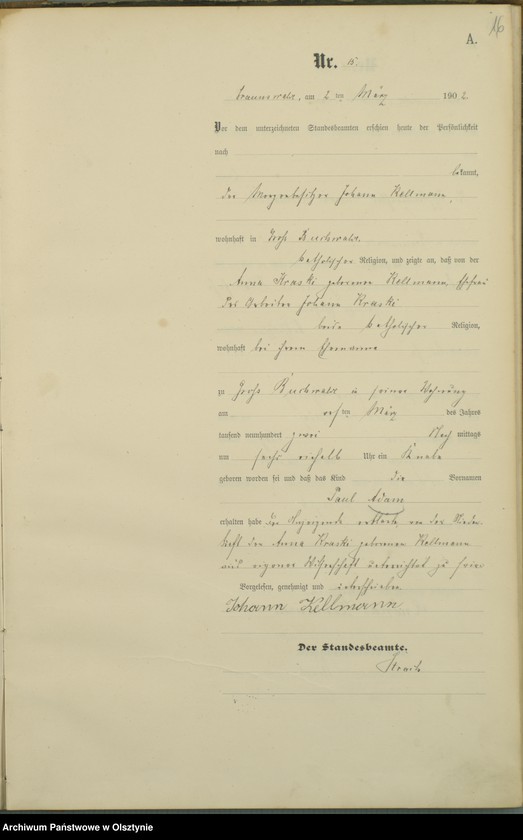 16
A.
Nr. 15.
Braunswalde, am 2 ten März 1902
Vor dem unterzeichneten Standesbeamten erschien heute der Persönlichkeit
nach
bekannt,
der Johann Kellmann,
wohnhaft in Groß Buchwalde
katholischer Religion, und zeigte an, daß von der
Anna Kraski geborenen Kellmann, Ehefrau
des Arbeiters Johann Kraski
beide katholischer Religion,
wohnhaft bei ihrem Ehemanne
zu Groß Buchwalde in seiner Wohnung
am ersten März des Jahres
tausend neunhundert zwei Nach mittags
um sechs einhalb Uhr ein Knabe
geboren worden sei und daß das Kind die Vornamen
Paul Adam
erhalten habe. Der Anzeigende erklärte von der Nieder
kunft der Anna Kraski geborenen Kellmann
aus eigener Wissenschaft unterrichtet zu sein.
Vorgelesen, genehmigt und unterschrieben
Johann Kellmann
Der Standesbeamte.
Archiwum Państwowe w Olsztynie